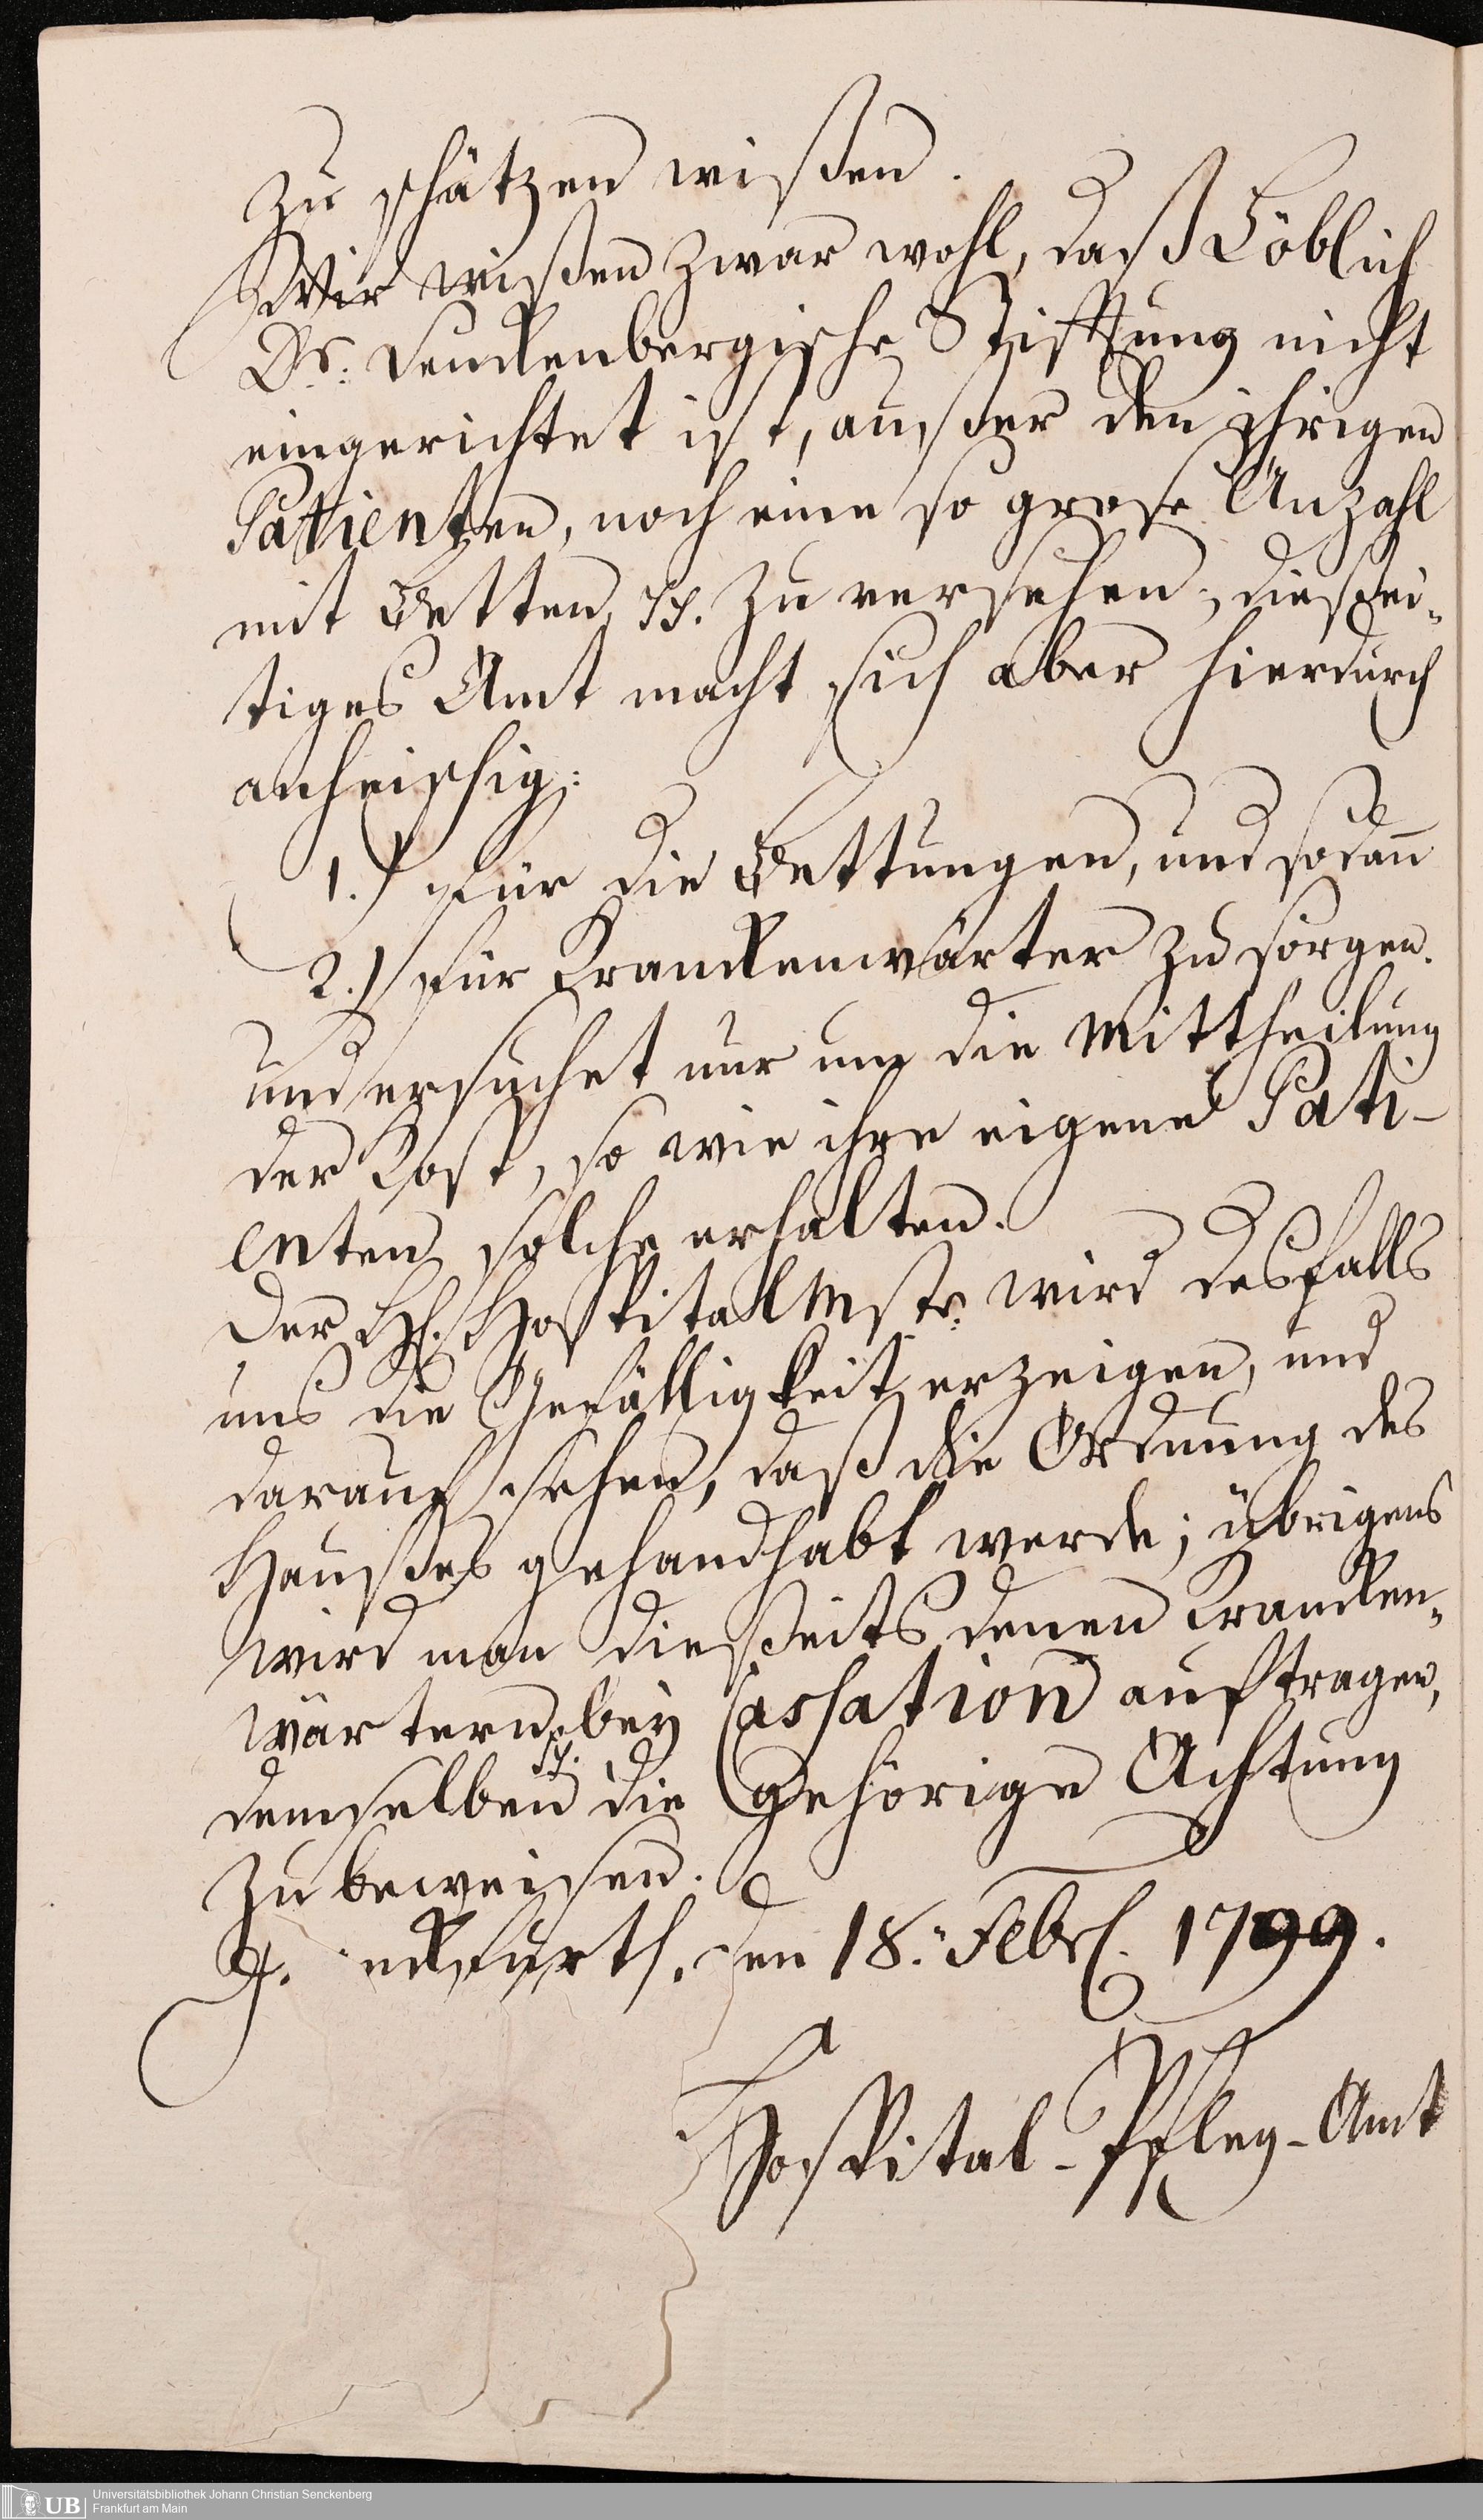 zu schätzen wißen.
Wir wißen zwar wohl, daß Löblich
Dr: Senckenbergische Stifftung nicht
eingerichtet ist, außer den ihrigen
Patienten, noch eine so grose Anzahl
mit Betten pp. zu versehen; diessei-
tiges Amt macht sich aber hierdurch
anheischig:
1.) für die Bettungen, und sodañ
2.) für Kranckenwärter zu sorgen.
und ersuchet nur um die Mittheilung
der Kost, so wie ihre eigene Pati-
enten solche erhalten.
Der H. Hospitalmstr: wird desfalls
uns die Gefälligkeit erzeigen, und
darauf sehen, daß die Ordnung des
Haußes gehandhabt werde; übrigens
wird man dießeits denen Krancken-
wärtern bey Cassation auftragen,
demselben pp. die gehörige Achtung
zu beweisen.
nckfurth, den 18. Febr. 1799.
Hospital-Pfleg-Amt
UB
Universitätsbibliothek Johann Christian Senckenberg
Frankfurt am Main